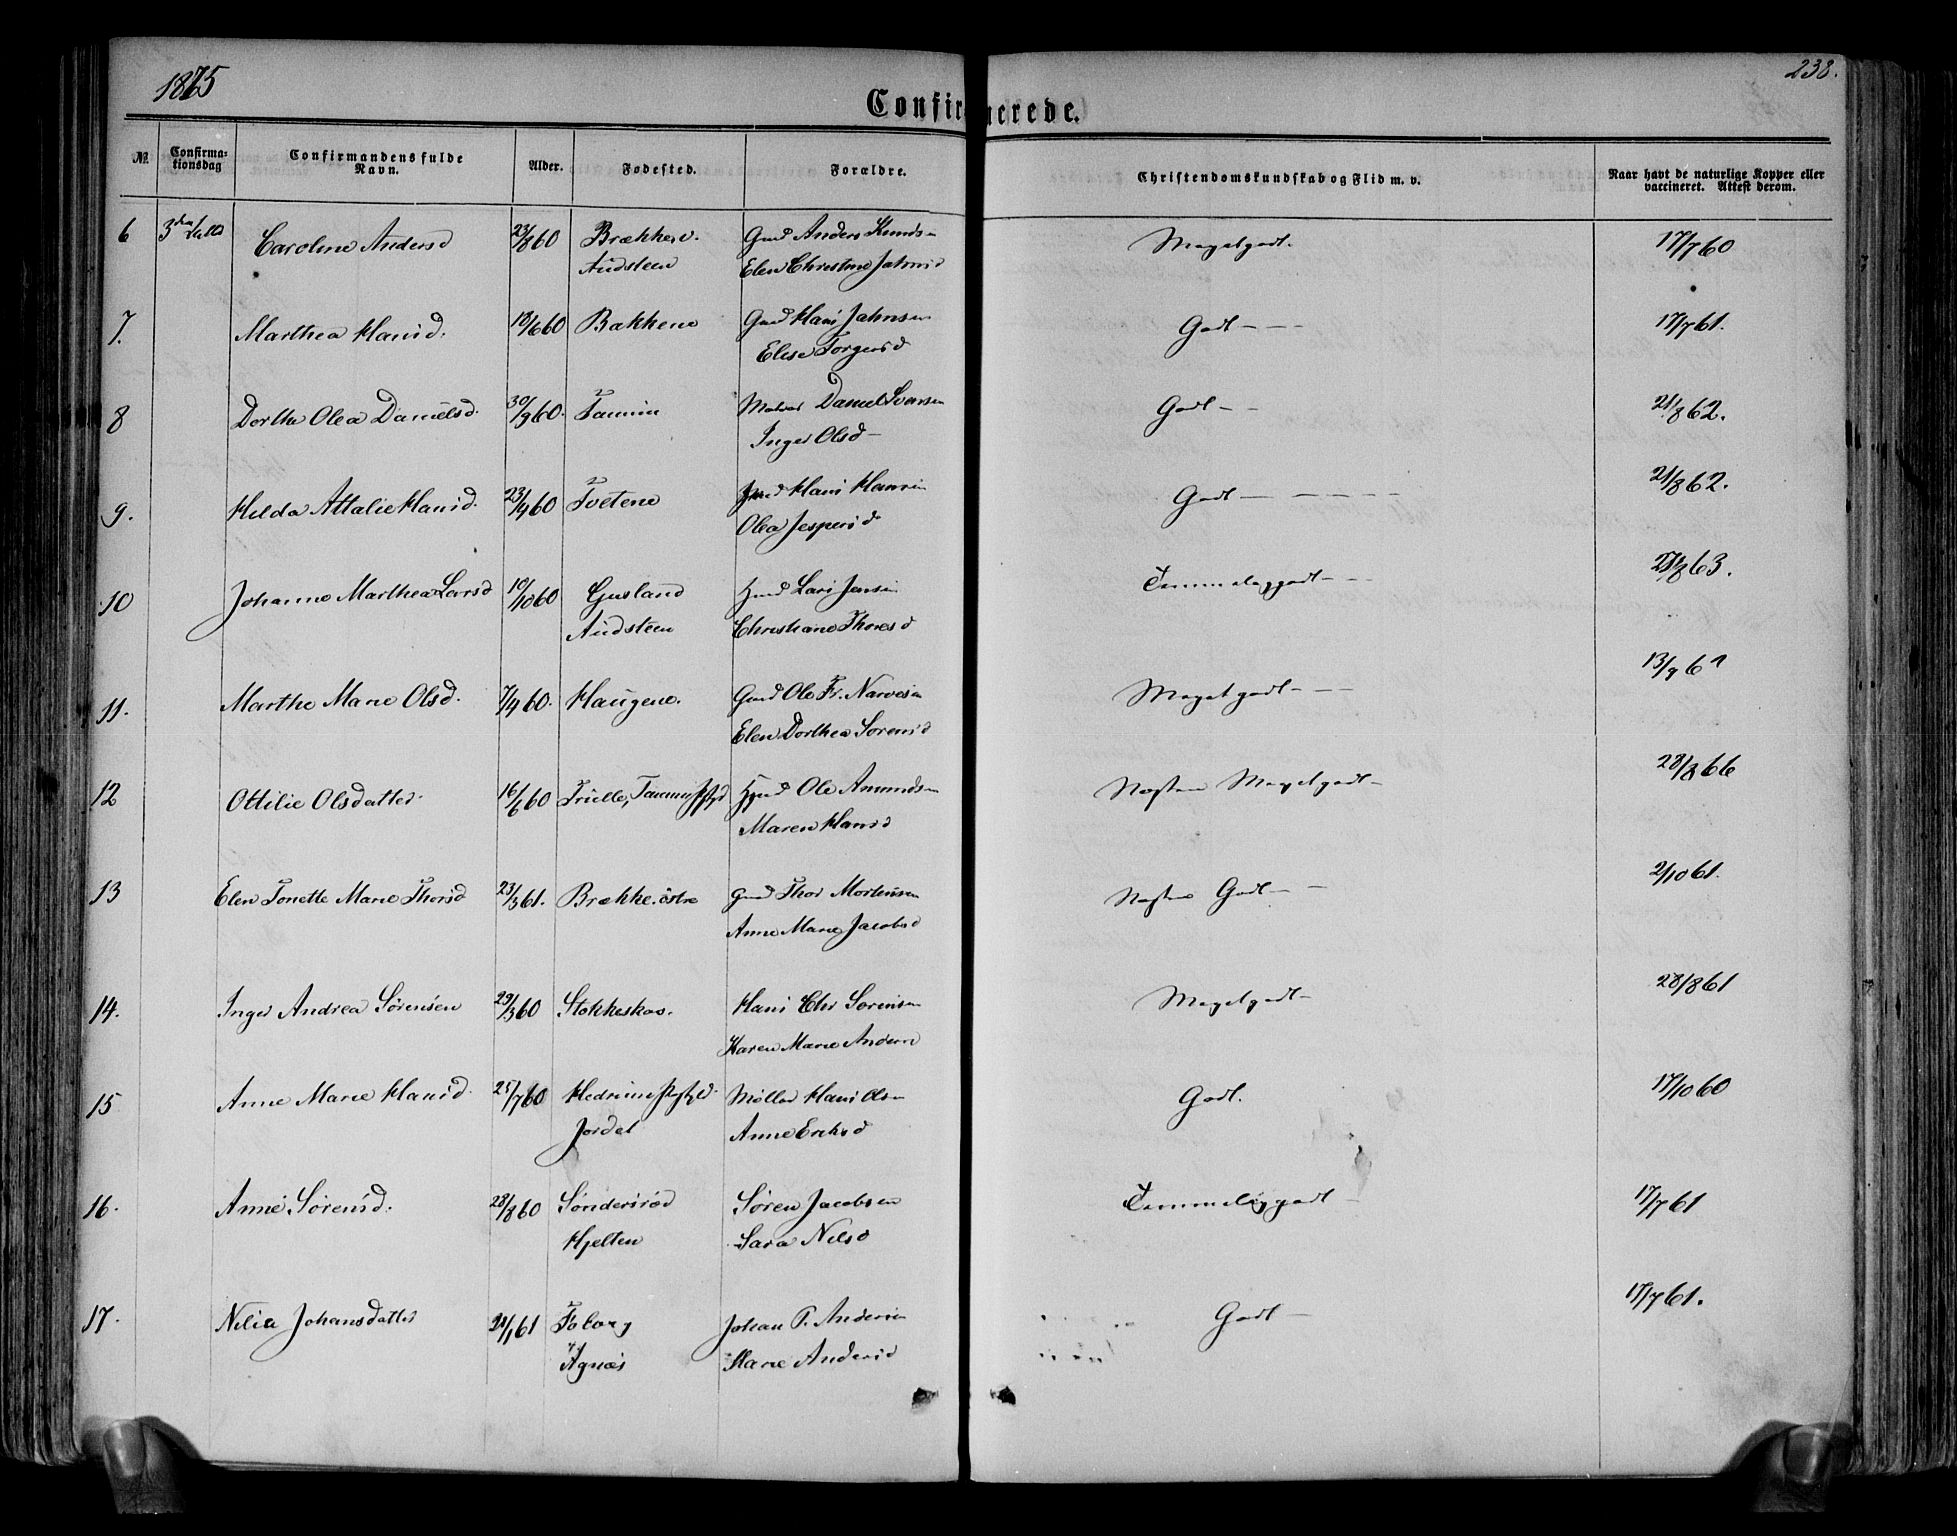 1875
238.
Confirmerede.
№
Confirma-
tionsdag
Confirmandens fulde
Navn.
Alder.
Fødested.
Forældre.
Christendomskundskab og Flid m. v.
Naar havt de naturlige Kopper eller
vaccineret. Attest derom.
6 Caroline Andersd 23/8 60 Brække v. Gmd Anders Knuds- Megetgodt. 17/7 60
Audsteen Elen Christine Jahnsd
7. Marthea Hansd. 18/6 60 Bakkene Gmd Hans Jahnsen Godt - - - 17/7 61.
Elise Torgersd
8 Dorthe Olea Danielsd. 30/9 60. Tamm Daniel Iversen Godt - - 21/8 62.
Inger Olsd -
9. Hilda Attalie Hansd. 23/4 60 Tvetene Hmd Hans Hansen Godt - - - - - 21/8 62.
Olea Jespersd
10 Johanne Marthea Larsd 10/10 60 Gusland Hmd Lars Jensen Temmeliggodt - - 63.
Audsteen Christiane Thoresd
11. Marthe Marie Olsd. 7/4 60. Haugene. Gmd Ole Fr. Narvesen Megetgodt - - - 13/9 61
Elen Dorthea Sorensd
12 Ottilie Olsdatter 16/6 60 Ole Amundsen Næsten Megetgodt - 28/8 66
Maren Hansd
13 Elen Tonette Marie Thorsd 23/3 61. Brække østre Gmd Thor Mortensen Næsten Godt - - 2/10 61.
Anne Marie Jacobsd
14. Inger Andrea Sørensen 29/3 60 Stokkeskov. Hans Chr Sorensen Megetgodt - 28/8 61
Karen Marie Anders
15 Anne Marie Hansd. 25/7 60 Hedrums Møller Hans Olsen Godt. 17/10 60
Jordet Anne Eriksd
16. Anne Sørensd. 28/8 60 Søndersrød Søren Jacobsen Temmeliggodt - 17/7 61
Hjelten Sara Nilsd
17. Nilia Johansdatter /1 61 Johan P. Andersen Godt - 17/7 61.
Agnæs Marie Andersd